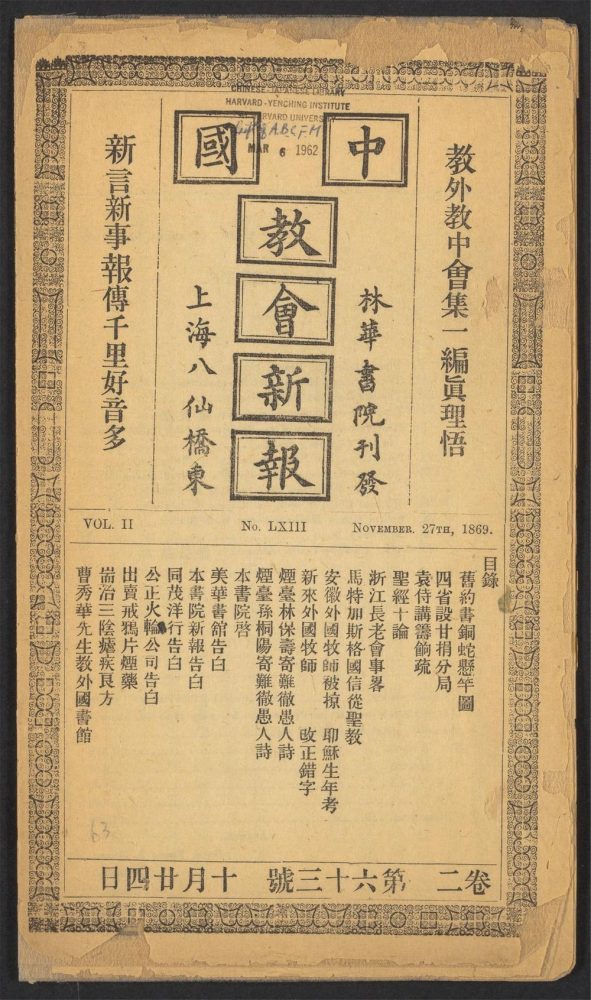 CHINESE-JAPANESE LIBRARY
HARVARD-YENCHING INSTITUTE
HARVARD UNIVERSITY
MAR 6 1962
中國
教會新報
教外教中會集一編眞理悟
林華書院刊發
上海八仙橋東
新言新事報傳千里好音多
VOL. II
No. LXIII
NOVEMBER. 27TH, 1869.
目錄
舊約書銅蛇懸竿圖
四省設甘捐分局
袁侍講籌餉疏
聖經十論
浙江長老會事畧
馬特加斯格國信從聖教
安徽外國牧師被掠 耶穌生年考
新來外國牧師 改正錯字
煙臺林保壽寄難徹愚人詩
煙臺孫桐陽寄難徹愚人詩
本書院啓
美華書館告白
本書院新報告白
同茂洋行告白
公正火輪公司告白
出賣戒鴉片煙藥
耑治三陰瘧疾良方
曹秀華先生教外國書館
卷二 第六十三號 十月廿四日
63